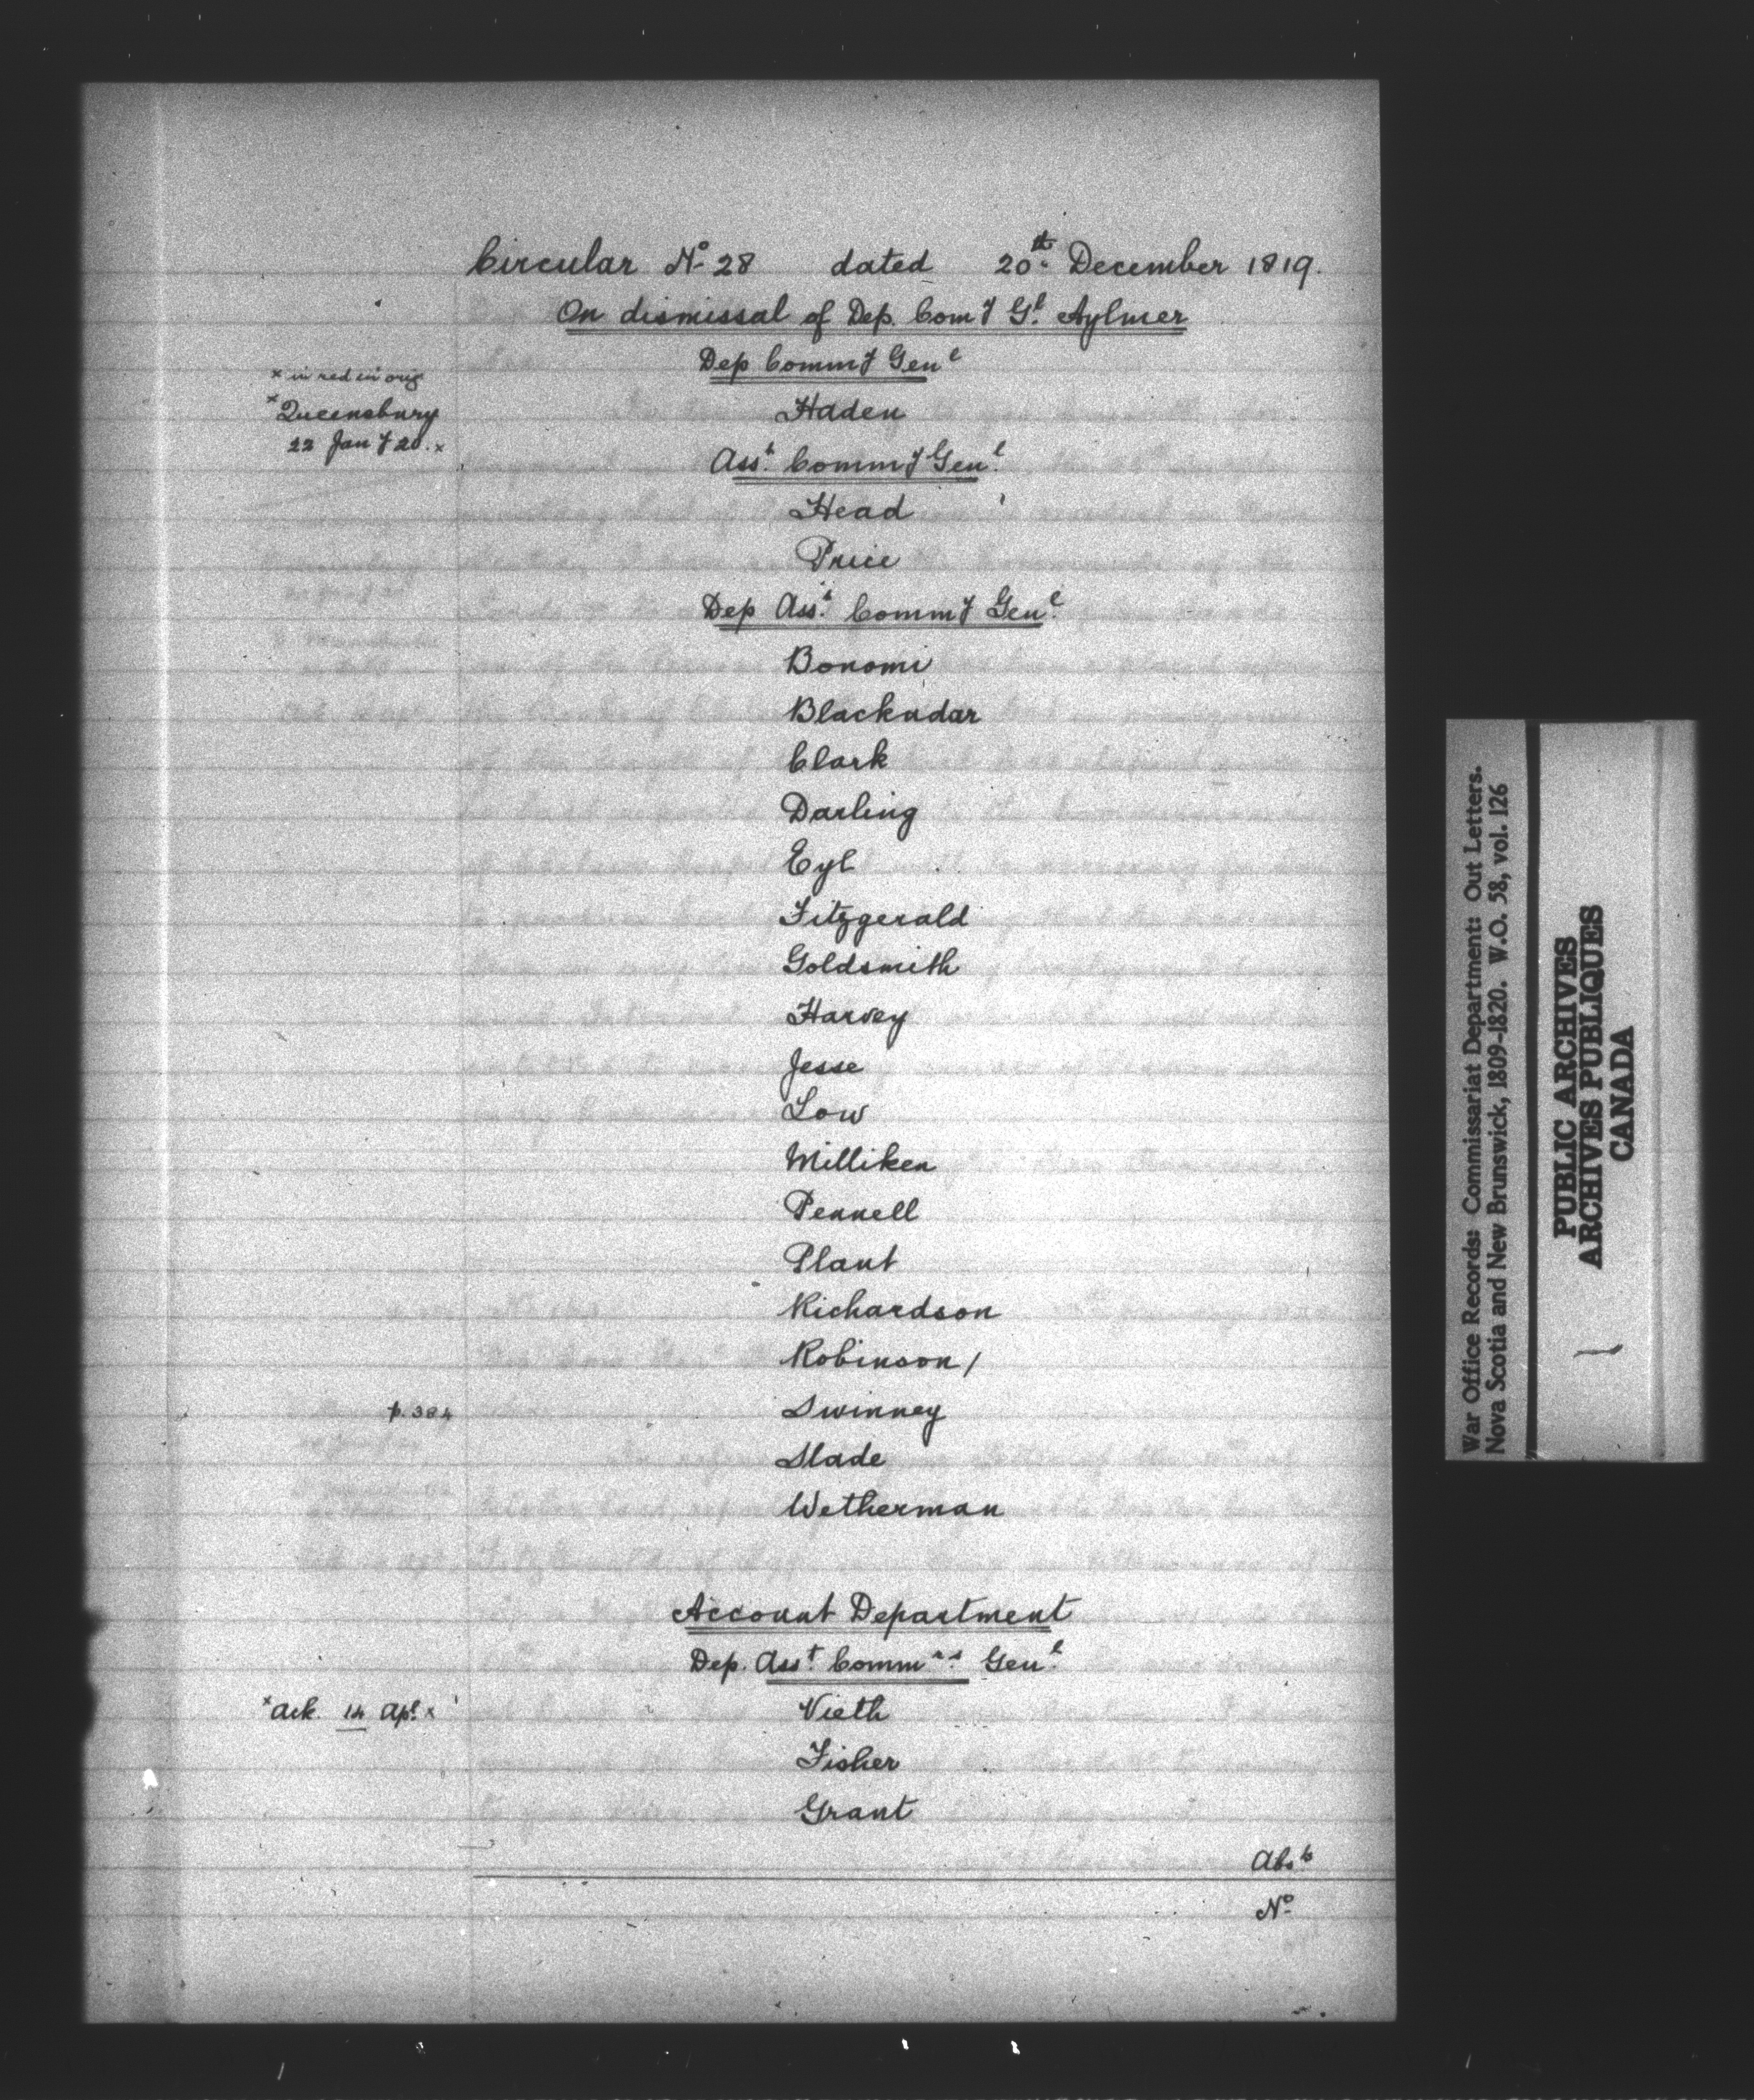 Circular No 28 dated 20th December 1819.
On dismissal of Dep. Comy Gl Aylmer
Dep Commy Genl
x in red in orig
xQueensbury
22 Jany 20.x
Haden
Asst Commy Genl
Head
Price
Dep Asst Commy Genl
Bonomi
Blackadar
Clark
Darling
Eyl
Fitzgerald
Goldsmith
Harvey
Jesse
Low
Milliken
Pennell
Plant
Richardson
Robinson /
p. 384
Swinney
Slade
Wetherman
Account Department
Dep. Asst Commrs Genl
xAck. 14 Apl x
Vieth
Fisher
Grant
No
War Office Records: Commissariat Department: Out Letters.
Nova Scotia and New Brunswick, 1809-1820. W.O. 58, vol. 126
PUBLIC ARCHIVES
ARCHIVES PUBLIQUES
CANADA